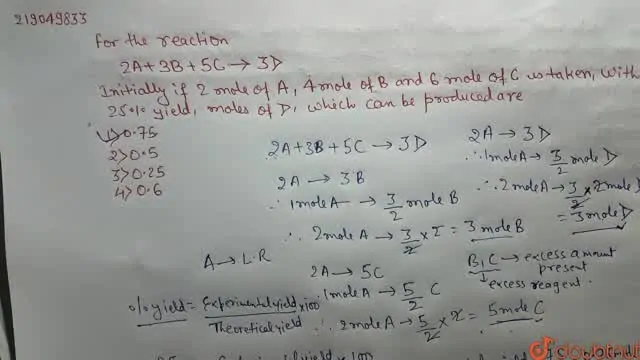 219049833
For the reaction
2A+3B+5C → 3D
Initially if 2 mole of A, 4 mole of B and 6 mole of C is taken, with
25% yield, moles of D, which can be produced are
1> 0.75
2> 0.5
3> 0.25
4> 0.6
2A+3B+5C → 3D
2A → 3B
∴ 1 mole A → 3/2 mole B
∴ 2 mole A → 3/2 × 2 = 3 mole B
A → L.R
2A → 5C
1 mole A → 5/2 C
∴ 2 mole A → 5/2 × 2 = 5 mole C
% yield = Experimental yield / Theoretical yield × 100
2A → 3D
∴ 1 mole A → 3/2 mole D
∴ 2 mole A → 3/2 × 2 mole D
= 3 mole D
B, C → excess amount
present
↓
excess reagent.